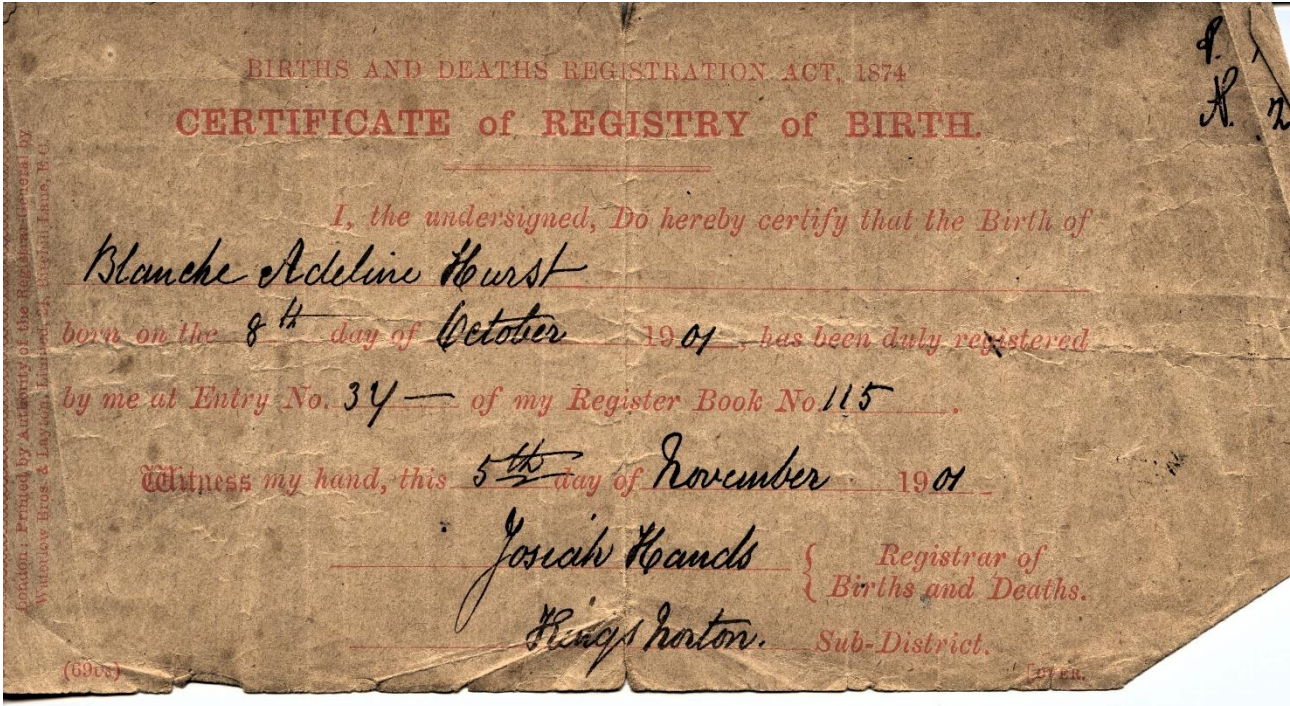 BIRTHS AND DEATHS REGISTRATION ACT, 1874
CERTIFICATE of REGISTRY of BIRTH.
I, the undersigned, Do hereby certify that the Birth of
Blanche Adeline Hurst
born on the 8th day of October 1901, has been duly registered
by me at Entry No. 34— of my Register Book No 115.
Witness my hand, this 5th day of November 1901
Josiah Hands { Registrar of
Births and Deaths.
Kings Norton. Sub-District.
[OVER.
London: Printed by Authority of the Registrar-General by
Waterlow Bros. & Layton, Limited, 24, Birchin Lane, E.C.